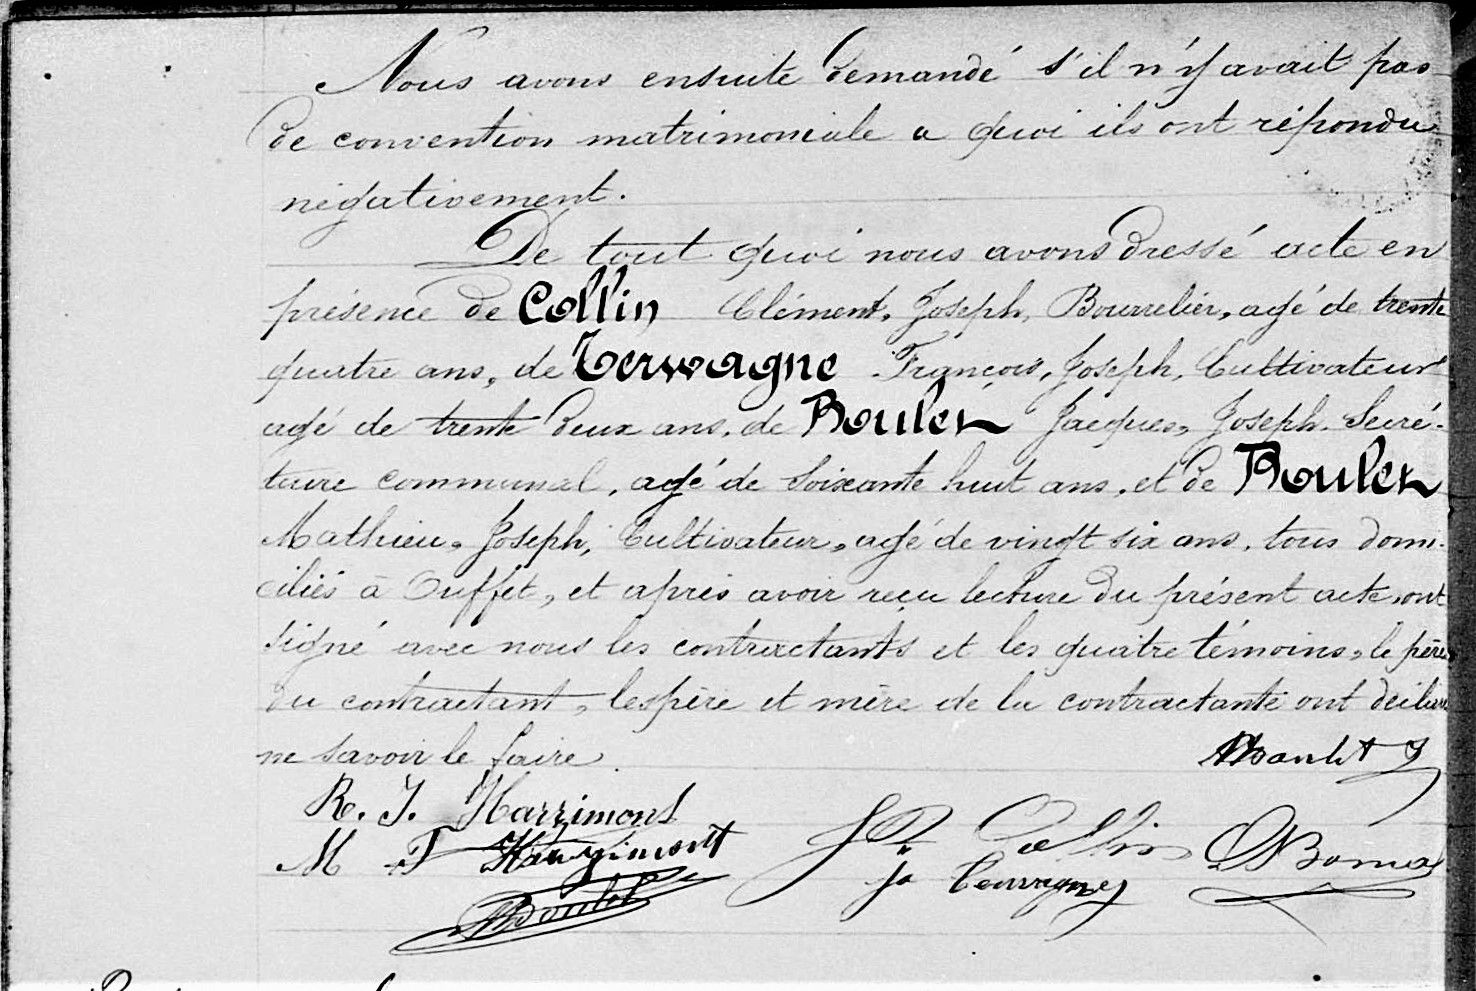 Nous avons ensuite demandé s'il n'y avait pas
de convention matrimoniale a quoi ils ont répondu
négativement.
De tout quoi nous avons dressé acte en
présence de Collin Clément, Joseph, Bourrelier, agé de trente
quatre ans, de Terwagne François, Joseph, Cultivateur
agé de trente deux ans, de Boulet Jacques, Joseph Secré-
taire communal, agé de soixante huit ans, et de Boulet
Mathieu, Joseph, Cultivateur, agé de vingt six ans, tous domi-
ciliés à Ouffet, et après avoir reçu lecture du présent acte, ont
signé avec nous les contractants et les quatre témoins, le père
du contractant, les père et mère de la contractante ont déclaré
ne savoir le faire.
R. J. Harzimont
M J Harzimont
Collin
Boulet